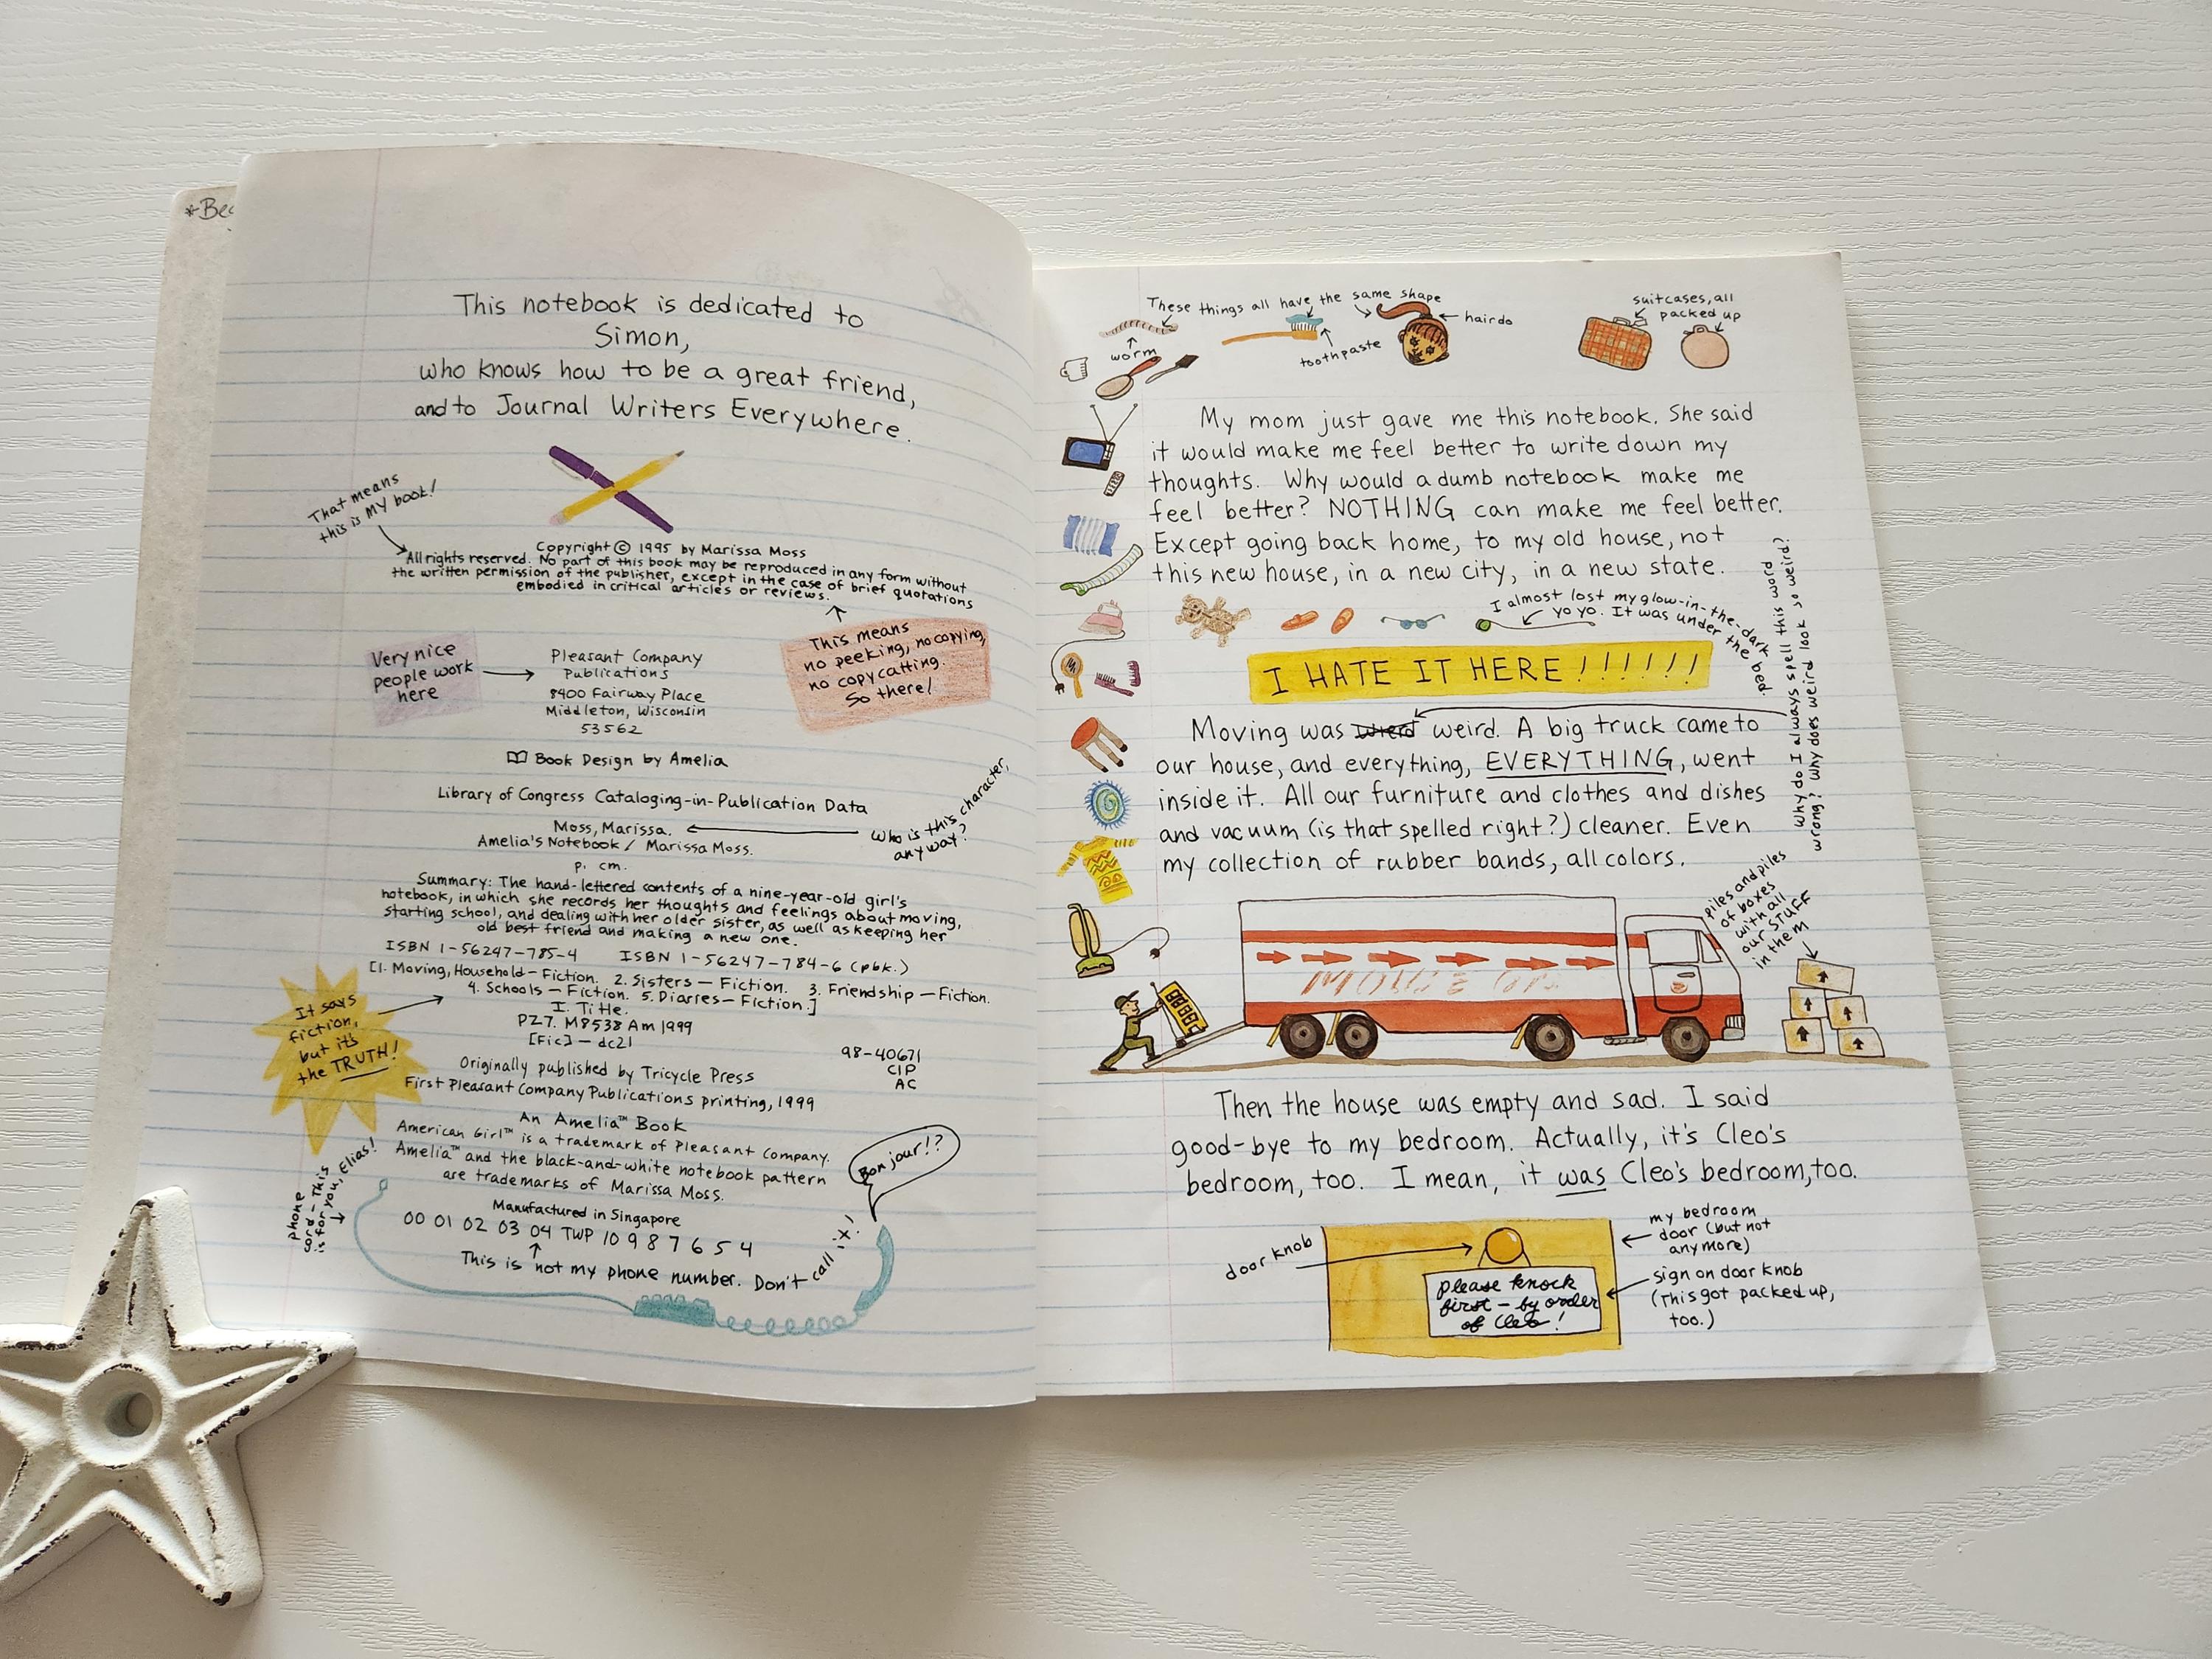 *Bec
This notebook is dedicated to
Simon,
who knows how to be a great friend,
and to Journal Writers Everywhere.
That means
this is MY book!
Copyright © 1995 by Marissa Moss
All rights reserved. No part of this book may be reproduced in any form without
the written permission of the publisher, except in the case of brief quotations
embodied in critical articles or reviews.
This means
no peeking, no copying,
no copycatting.
So there!
Very nice
people work
here
Pleasant Company
Publications
8400 Fairway Place
Middleton, Wisconsin
53562
Book Design by Amelia
Library of Congress Cataloging-in-Publication Data
Moss, Marissa.
Who is this character,
anyway?
Amelia's Notebook / Marissa Moss.
p. cm.
Summary: The hand-lettered contents of a nine-year-old girl's
notebook, in which she records her thoughts and feelings about moving,
starting school, and dealing with her older sister, as well as keeping her
old best friend and making a new one.
ISBN 1-56247-785-4 ISBN 1-56247-784-6 (pbk.)
[1. Moving, Household - Fiction. 2. Sisters - Fiction. 3. Friendship - Fiction.
4. Schools - Fiction. 5. Diaries - Fiction.]
I. Title.
PZ7. M8538 Am 1999
[Fic] - dc21
98-40671
CIP
AC
It says
fiction,
but it's
the TRUTH!
Originally published by Tricycle Press
First Pleasant Company Publications printing, 1999
An Amelia™ Book
American Girl™ is a trademark of Pleasant Company.
Amelia™ and the black-and-white notebook pattern
are trademarks of Marissa Moss.
Bonjour!?
phone
cord - This
is for you, Elias!
Manufactured in Singapore
00 01 02 03 04 TWP 10 9 8 7 6 5 4
This is not my phone number. Don't call it!
These things all have the same shape
worm
toothpaste
hairdo
suitcases, all
packed up
My mom just gave me this notebook. She said
it would make me feel better to write down my
thoughts. Why would a dumb notebook make me
feel better? NOTHING can make me feel better.
Except going back home, to my old house, not
this new house, in a new city, in a new state.
I almost lost my glow-in-the-dark
yo yo. It was under the bed.
I HATE IT HERE!!!!!!
Why do I always spell this word
wrong? Why does weird look so weird?
Moving was wierd weird. A big truck came to
our house, and everything, EVERYTHING, went
inside it. All our furniture and clothes and dishes
and vacuum (is that spelled right?) cleaner. Even
my collection of rubber bands, all colors.
piles and piles
of boxes
with all
our STUFF
in them
Then the house was empty and sad. I said
good-bye to my bedroom. Actually, it's Cleo's
bedroom, too. I mean, it was Cleo's bedroom, too.
door knob
my bedroom
door (but not
anymore)
please knock
first - by order
of Cleo!
sign on door knob
(This got packed up,
too.)